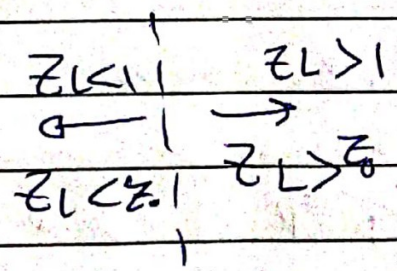 ZL<1 ZL>1
ZL<Z0 ZL>Z0